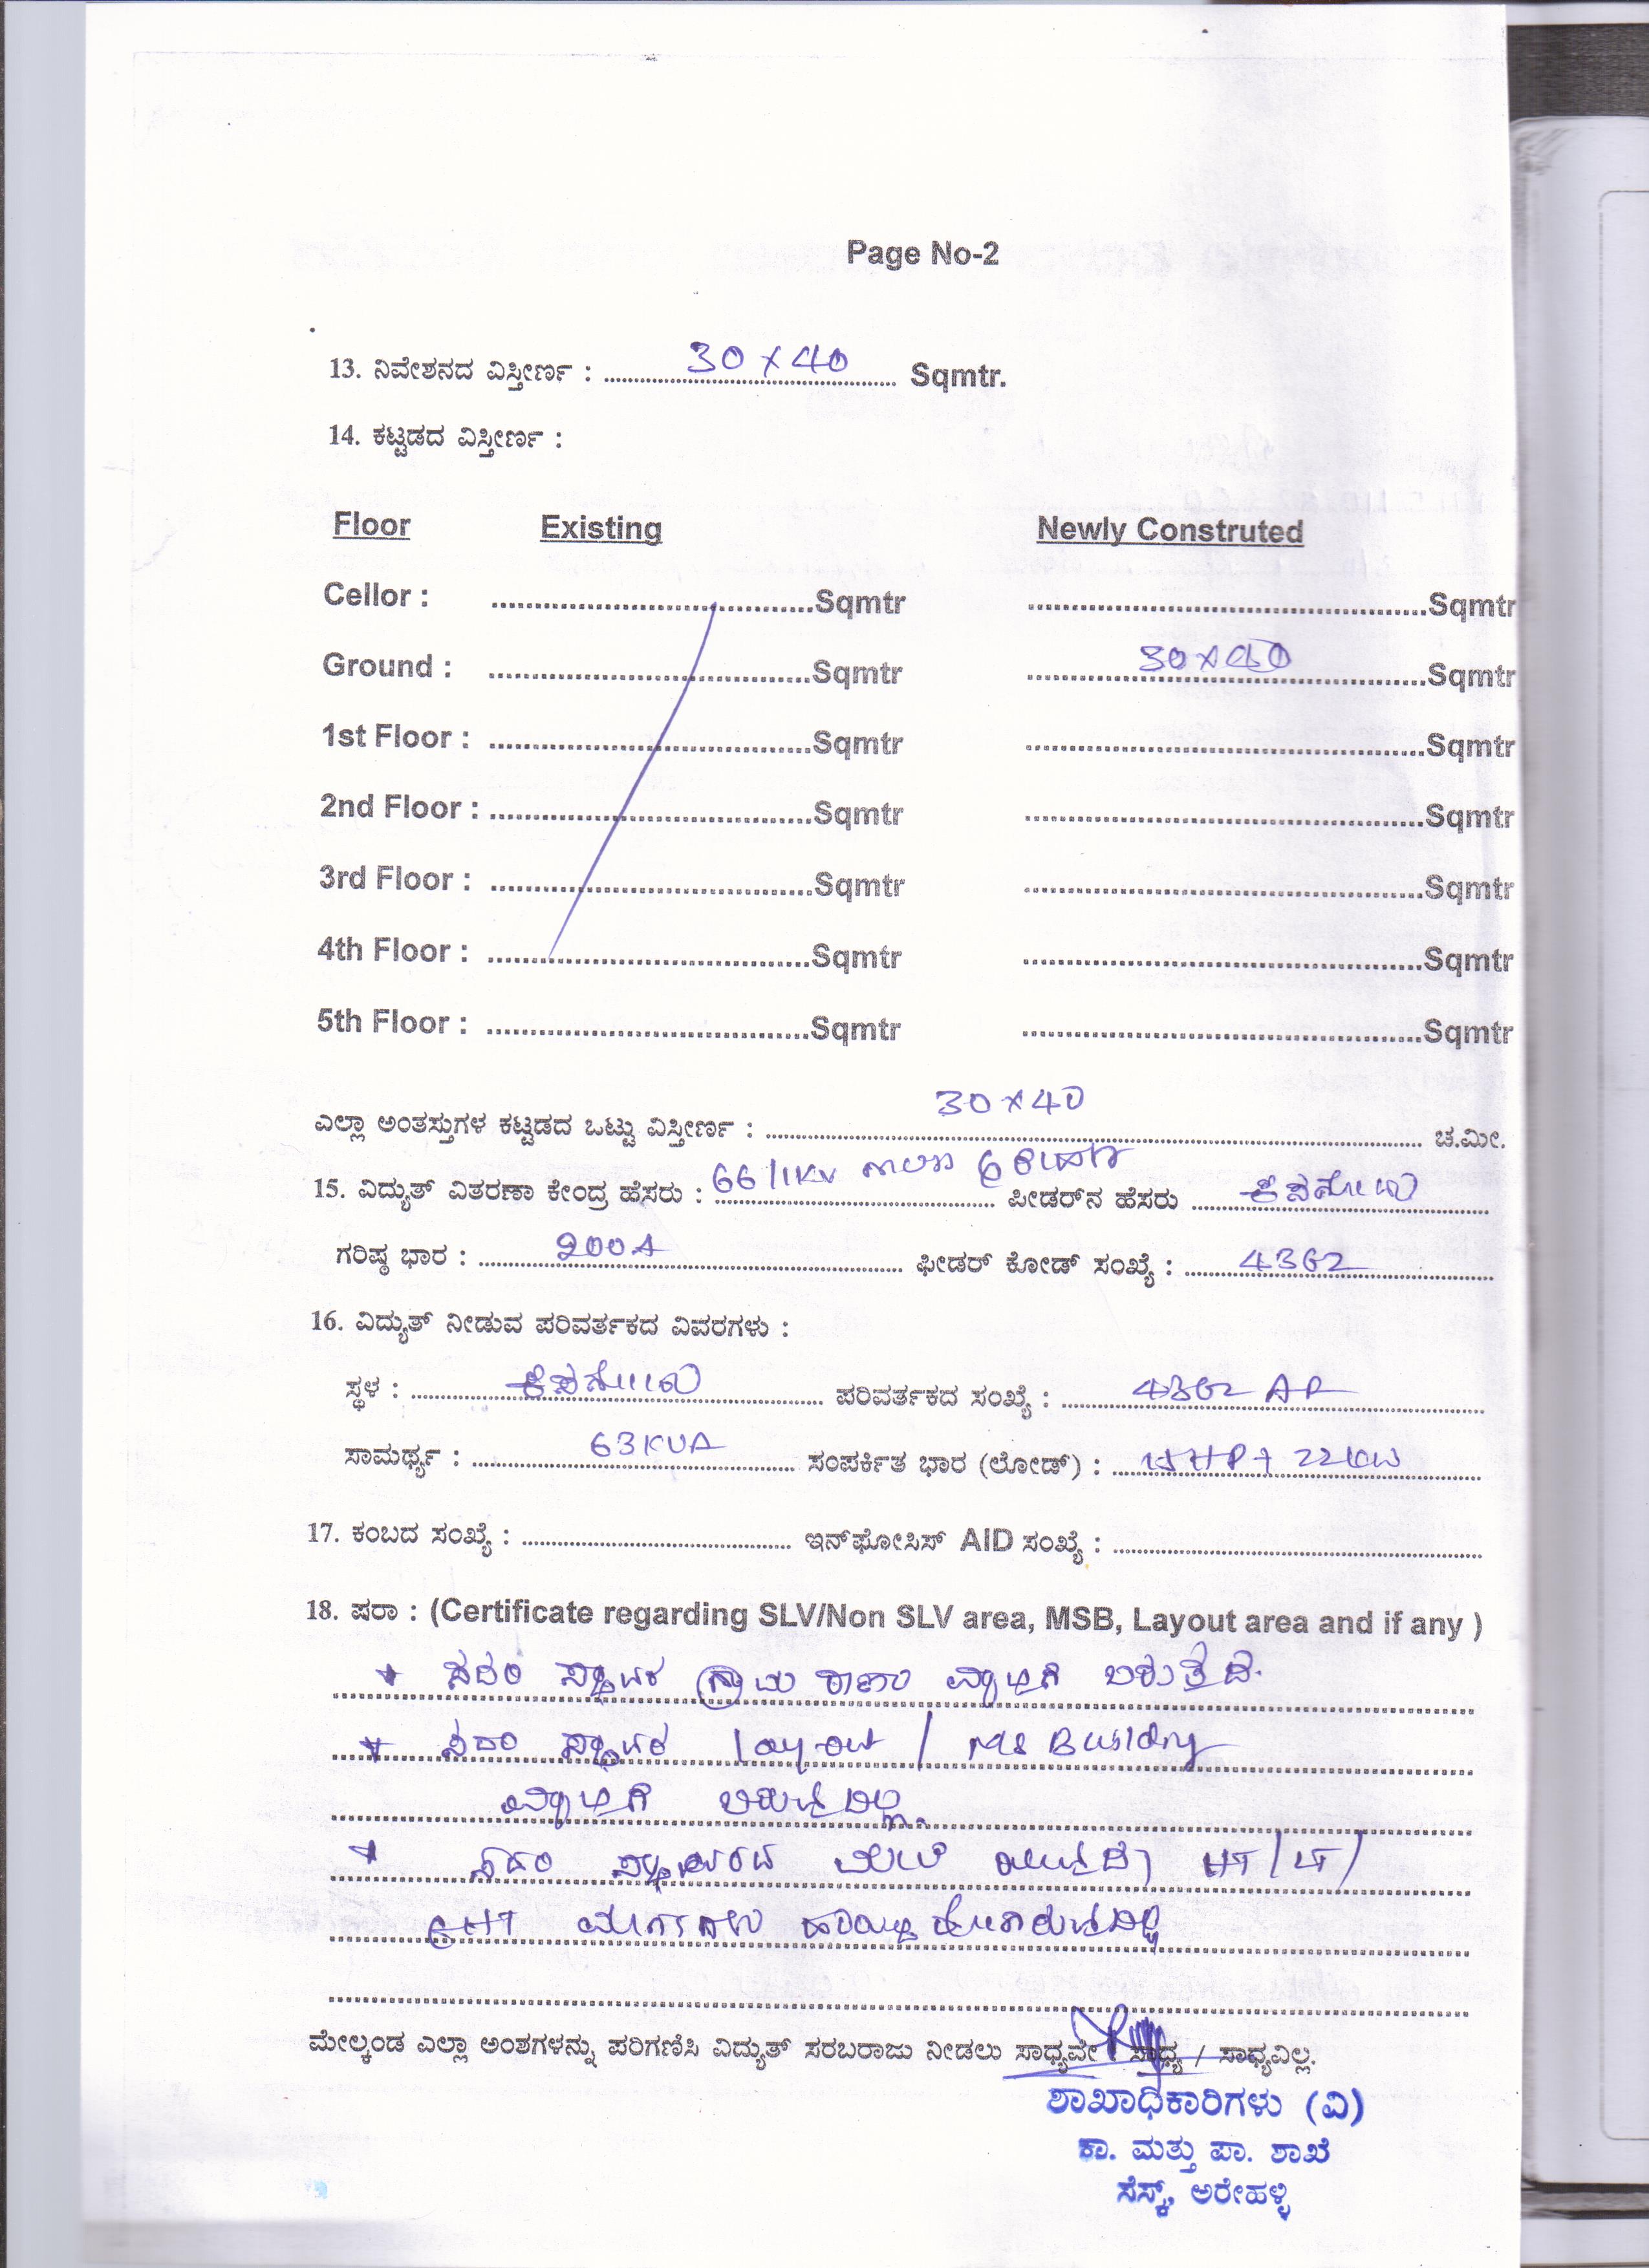 Page No-2
13. ನಿವೇಶನದ ವಿಸ್ತೀರ್ಣ : 30 x 40 Sqmtr.
14. ಕಟ್ಟಡದ ವಿಸ್ತೀರ್ಣ :
Floor Existing Newly Construted
Cellor : Sqmtr Sqmtr
Ground : Sqmtr 30x40 Sqmtr
1st Floor : Sqmtr Sqmtr
2nd Floor : Sqmtr Sqmtr
3rd Floor : Sqmtr Sqmtr
4th Floor : Sqmtr Sqmtr
5th Floor : Sqmtr Sqmtr
ಎಲ್ಲಾ ಅಂತಸ್ತುಗಳ ಕಟ್ಟಡದ ಒಟ್ಟು ವಿಸ್ತೀರ್ಣ : 30x40 ಚ.ಮೀ.
15. ವಿದ್ಯುತ್ ವಿತರಣಾ ಕೇಂದ್ರ ಹೆಸರು : 66/11KV ಪೀಡರ್‌ನ ಹೆಸರು
ಗರಿಷ್ಠ ಭಾರ : 200A ಫೀಡರ್ ಕೋಡ್ ಸಂಖ್ಯೆ :
16. ವಿದ್ಯುತ್ ನೀಡುವ ಪರಿವರ್ತಕದ ವಿವರಗಳು :
ಸ್ಥಳ : ಪರಿವರ್ತಕದ ಸಂಖ್ಯೆ :
ಸಾಮರ್ಥ್ಯ : 63KVA ಸಂಪರ್ಕಿತ ಭಾರ (ಲೋಡ್) : 15HP + 22KW
17. ಕಂಬದ ಸಂಖ್ಯೆ : ಇನ್‌ಫೋಸಿಸ್ AID ಸಂಖ್ಯೆ :
18. ಷರಾ : (Certificate regarding SLV/Non SLV area, MSB, Layout area and if any )
* ಸದರಿ ಸ್ಥಾವರ ಗ್ರಾಮ ಠಾಣಾ ವ್ಯಾಪ್ತಿಗೆ ಬರುತ್ತದೆ.
* ಸದರಿ ಸ್ಥಾವರ Layout / MS Building
ವ್ಯಾಪ್ತಿಗೆ ಬರುವುದಿಲ್ಲ.
* ಸದರಿ ಸ್ಥಾವರದ ಮೇಲೆ HT/LT/
EHT ಮಾರ್ಗಗಳು
ಮೇಲ್ಕಂಡ ಎಲ್ಲಾ ಅಂಶಗಳನ್ನು ಪರಿಗಣಿಸಿ ವಿದ್ಯುತ್ ಸರಬರಾಜು ನೀಡಲು ಸಾಧ್ಯವೇ ಸಾಧ್ಯ / ಸಾಧ್ಯವಿಲ್ಲ.
ಶಾಖಾಧಿಕಾರಿಗಳು (ವಿ)
ಕಾ. ಮತ್ತು ಪಾ. ಶಾಖೆ
ಸೆಸ್ಕ್, ಅರೇಹಳ್ಳಿ